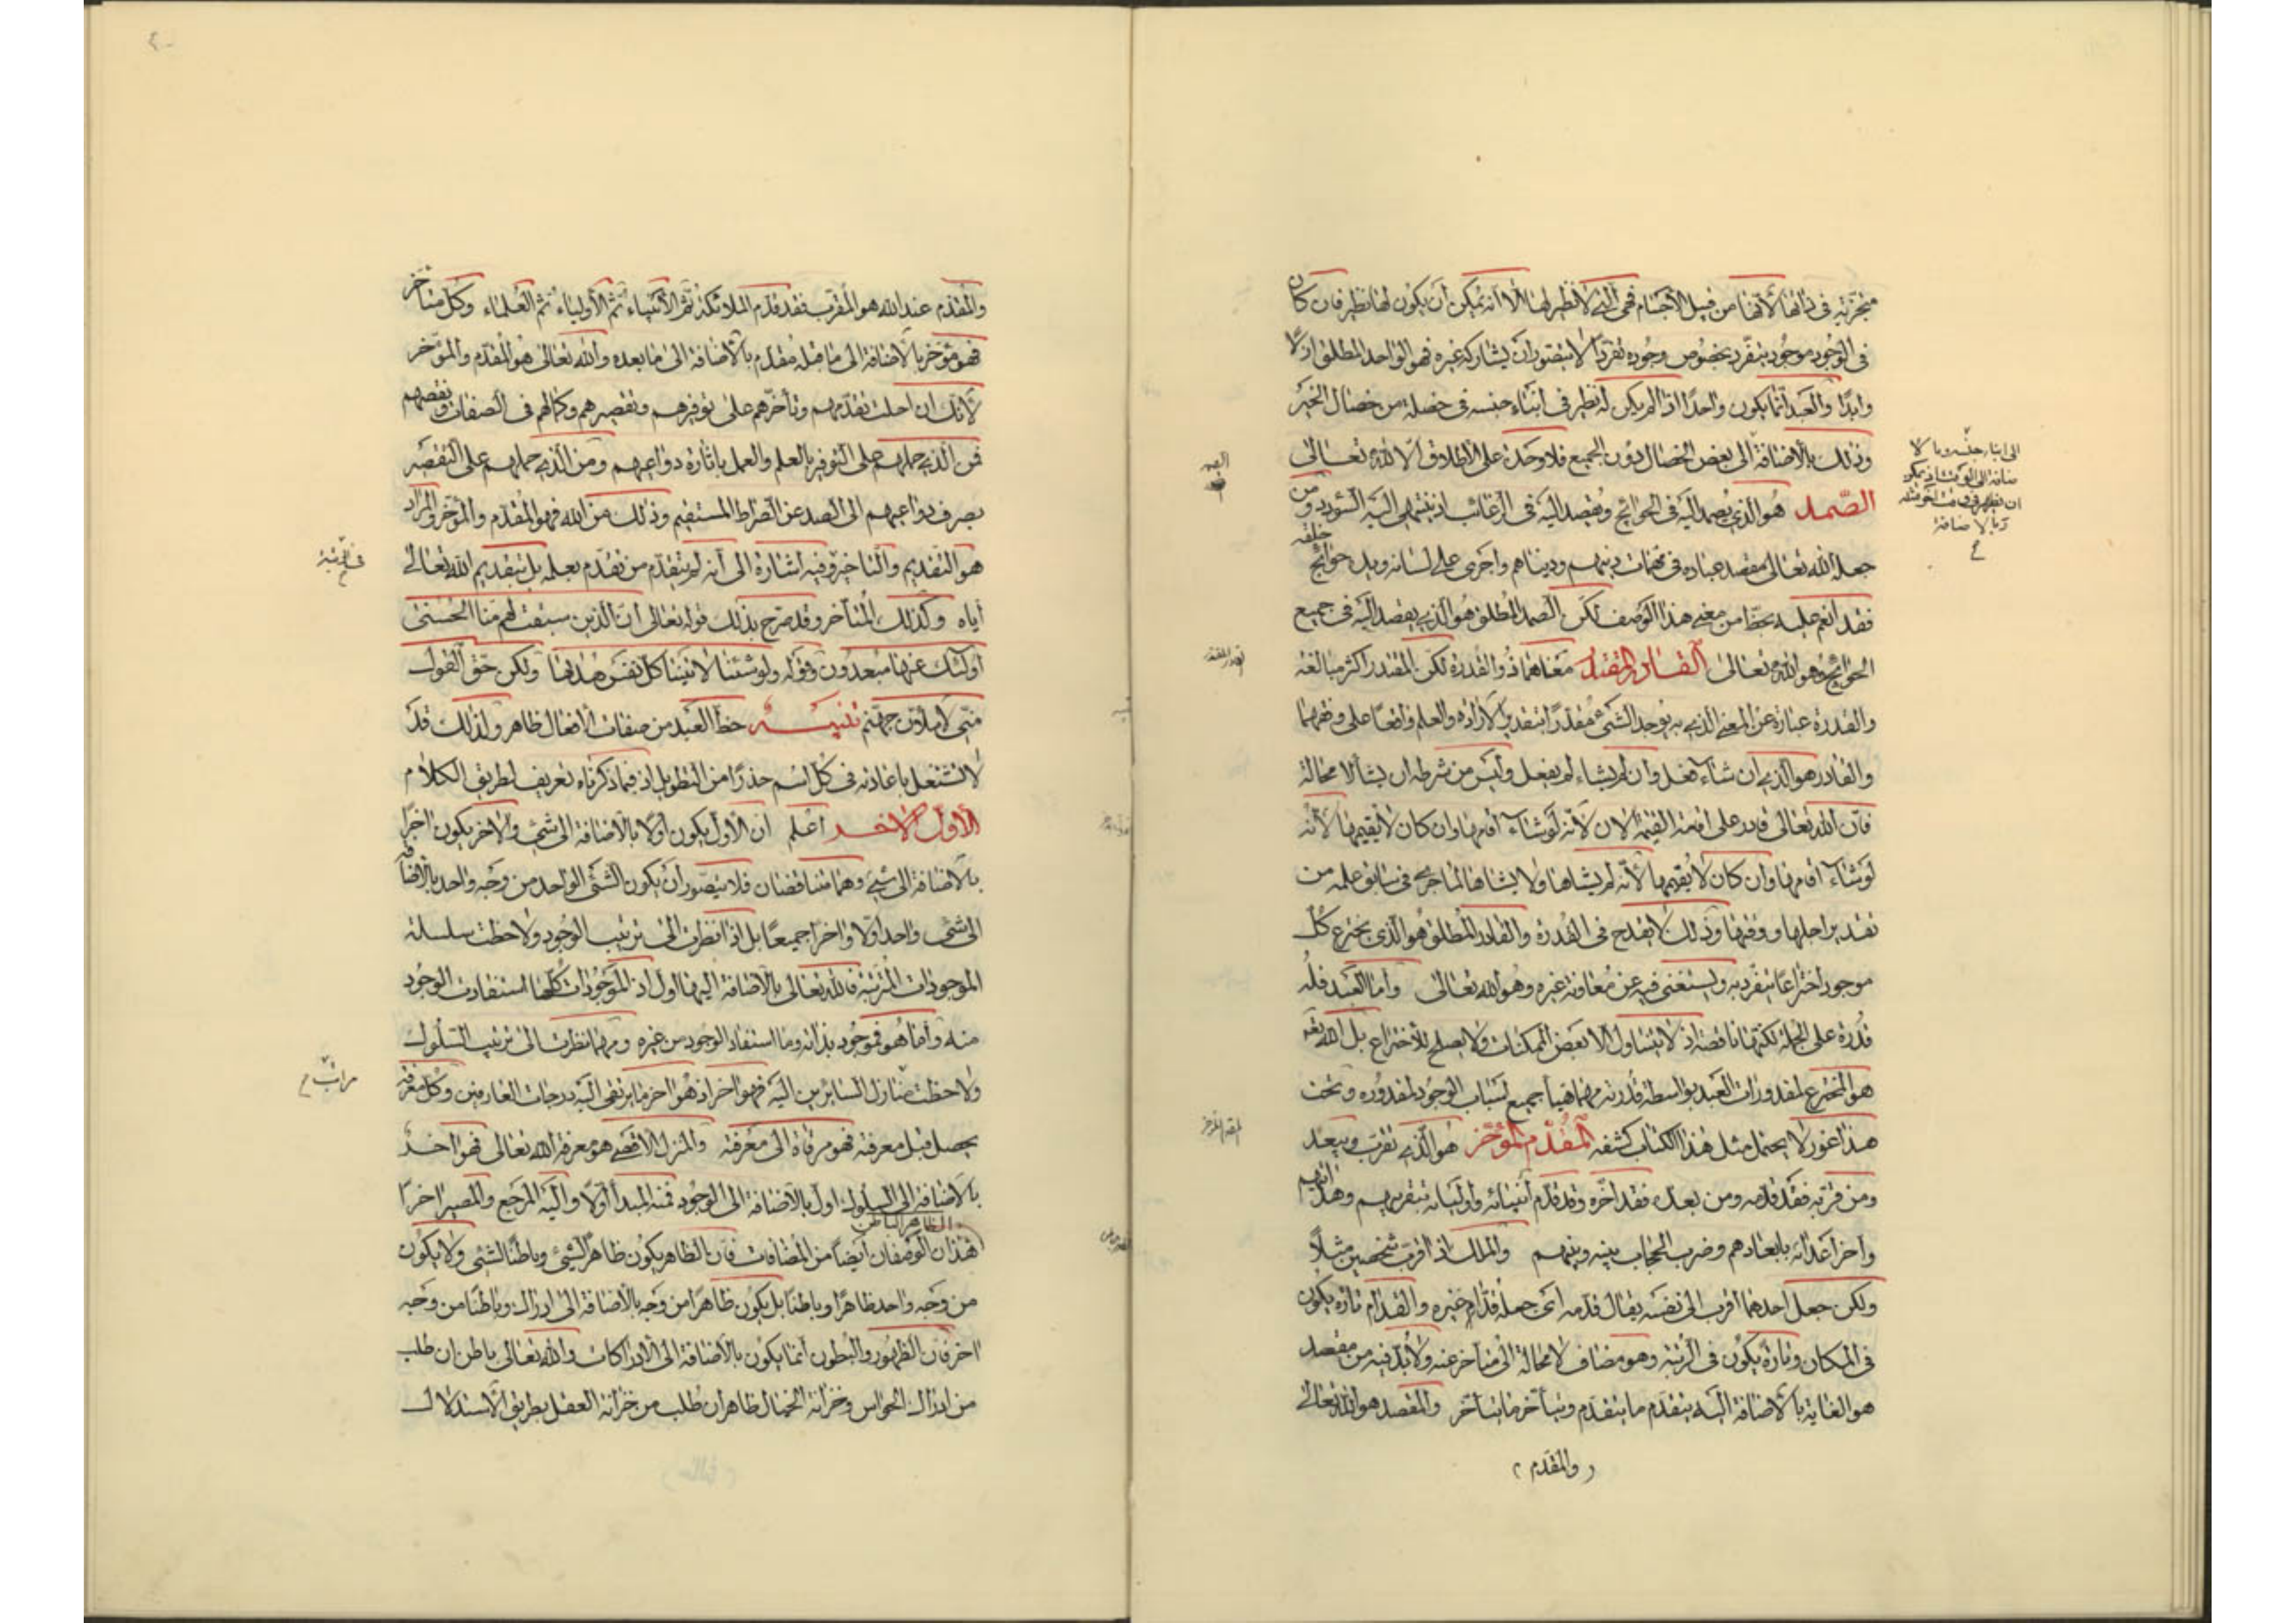 متجزية في ذاتها لأنها من قبيل الأجسام فهي التي لا نظير لها إلا أنه يمكن أن يكون لها نظير فان كان
في الوجود موجود ينفرد بخصوص وجوده تفردا لا يتصور أن يشاركه غيره فهو الواحد المطلق ازلا
وابدا والعبد إنما يكون واحدا اذا لم يكن له نظير في ابناء جنسه في خصلة من خصال الخير
وذلك بالأضافة الى بعض الخصال دون الجميع فلا وحدة على الأطلاق الا لله تعالى
الصمد هو الذي يصمد اليه في الحوائج ويقصد اليه في الرغائب اذ ينتهي اليه السؤدد ومن
جعله الله تعالى مقصد عباده في مهمات دينهم ودنياهم واجرى على لسانه ويده حوائج خلقه
فقد أنعم عليه بحظ من معنى هذا الوصف لكن الصمد المطلق هو الذي يقصد اليه في جميع
الحوائج وهو الله تعالى القادر المقتدر معناهما ذو القدرة لكن المقتدر اكثر مبالغة
والقدرة عبارة عن المعنى الذي به يوجد الشئ مقدرا بتقدير الأرادة والعلم واقعا على وفقهما
والقادر هو الذي ان شاء فعل وان لم يشاء لم يفعل وليس من شرطه ان يشأ لا محالة
فان الله تعالى قادر على اقامة القيمة الان لأنه لو شاء أقامها وان كان لا يقيمها لأنه
لو شاء أقامها وان كان لا يقيمها لأنه لم يشاها ولا يشاها لما جرى في سابق علمه من
تقدير اجلها ووقتها وذلك لا يقدح في القدرة والقادر المطلق هو الذي يخترع كل
موجود اختراعا ينفرد به ويستغنى فيه عن معاونة غيره وهو الله تعالى وأما العبد فله
قدرة على الجملة لكنها ناقصة اذ لا يتناول الا بعض الممكنات ولا يصلح للأختراع بل الله تعه
هو المخترع لمقدورات العبد بواسطة قدرته مهما هيأ جميع اسباب الوجود لمقدوره وتحت
هذا غور لا يحتمل مثل هذا الكتاب كشفه المقدم المؤخر هو الذي يقرب ويبعد
ومن قربه فقد قدمه ومن بعده فقد أخره وقد قدم أنبيائه وأوليائه بتقريبهم وهدايتهم
وأخر أعدائه بابعادهم وضرب الحجاب بينه وبينهم والملك اذا قرب شخصين مثلا
ولكن جعل احدهما أقرب الى نفسه يقال قدمه اى جعله قدام غيره والقدام تارة يكون
في المكان وتارة يكون في الرتبة وهو مضاف لا محالة الى متأخر عنه ولا بد فيه من مقصد
هو الغاية بالأضافة اليه يتقدم ما يتقدم ويتأخر ما يتأخر والمقصد هو الله تعالى
والمقدم
الصمد
المقدم المؤخر
والمقدم عند الله هو المقرب فقد قدم الملائكة ثم الأنبياء ثم الأولياء ثم العلماء وكل متأخر
فهو مؤخر بالأضافة الى ما قبله مقدم بالأضافة الى ما بعده والله تعالى هو المقدم والمؤخر
لأنك ان احلت تقدمهم وتأخرهم على توفيرهم وتقصيرهم وكمالهم في الصفات ونقصهم
فمن الذي حملهم على التوفير بالعلم والعمل باثارة دواعيهم ومن الذي حملهم على التقصير
بصرف دواعيهم الى الضد عن الصراط المستقيم وذلك من الله فهو المقدم والمؤخر والمراد
هو التقديم والتأخير وفيه اشارة الى أنه لم يتقدم من تقدم بعلمه بل بتقديم الله تعالى
أياه وكذلك المتأخر وقد صرح بذلك قوله تعالى ان الذين سبقت لهم منا الحسنى
اولئك عنها مبعدون وقوله ولو شئنا لاتينا كل نفس هديها ولكن حق القول
منى لأملأن جهنم تنبيه حظ العبد من صفات الأفعال ظاهر ولذلك قد
لا نشتغل باعادته في كل اسم حذرا من التطويل اذ فيما ذكرناه تعريف لطريق الكلام
الأول الآخر أعلم ان الأول يكون أولا بالأضافة الى شئ والأخر يكون اخرا
بالأضافة الى شئ وهما متناقضان فلا يتصور أن يكون الشئ الواحد من وجه واحد بالأضافة
الى شئ واحد أولا واخرا جميعا بل اذا نظرت الى ترتيب الوجود ولاحظت سلسلة
الموجودات المرتبة فالله تعالى بالأضافة اليها اول اذ الموجودات كلها استفادت الوجود
منه وأما هو فموجود بذاته وما استفاد الوجود من غيره ومهما نظرت الى ترتيب السلوك
ولاحظت منازل السائرين اليه فهو اخر اذ هو اخر ما يرتقى اليه درجات العارفين وكل معرفة
يحصل قبل معرفته فهو مرقاة الى معرفته والمنزل الأقصى هو معرفة الله تعالى فهو اخر
بالأضافة الى السلوك اول بالأضافة الى الوجود فمنه المبدأ أولا واليه المرجع والمصير اخرا
الظاهر الباطن
هذان الوصفان أيضا من المضافات فان الظاهر يكون ظاهرا لشئ وباطنا لشئ ولا يكون
من وجه واحد ظاهرا وباطنا بل يكون ظاهرا من وجه بالأضافة الى ادراك وباطنا من وجه
اخر فان الظهور والبطون أنما يكون بالأضافة الى الأدراكات والله تعالى باطن ان طلب
من ادراك الحواس وخزانة الخيال ظاهر ان طلب من خزانة العقل بطريق الأستدلال
مراتب